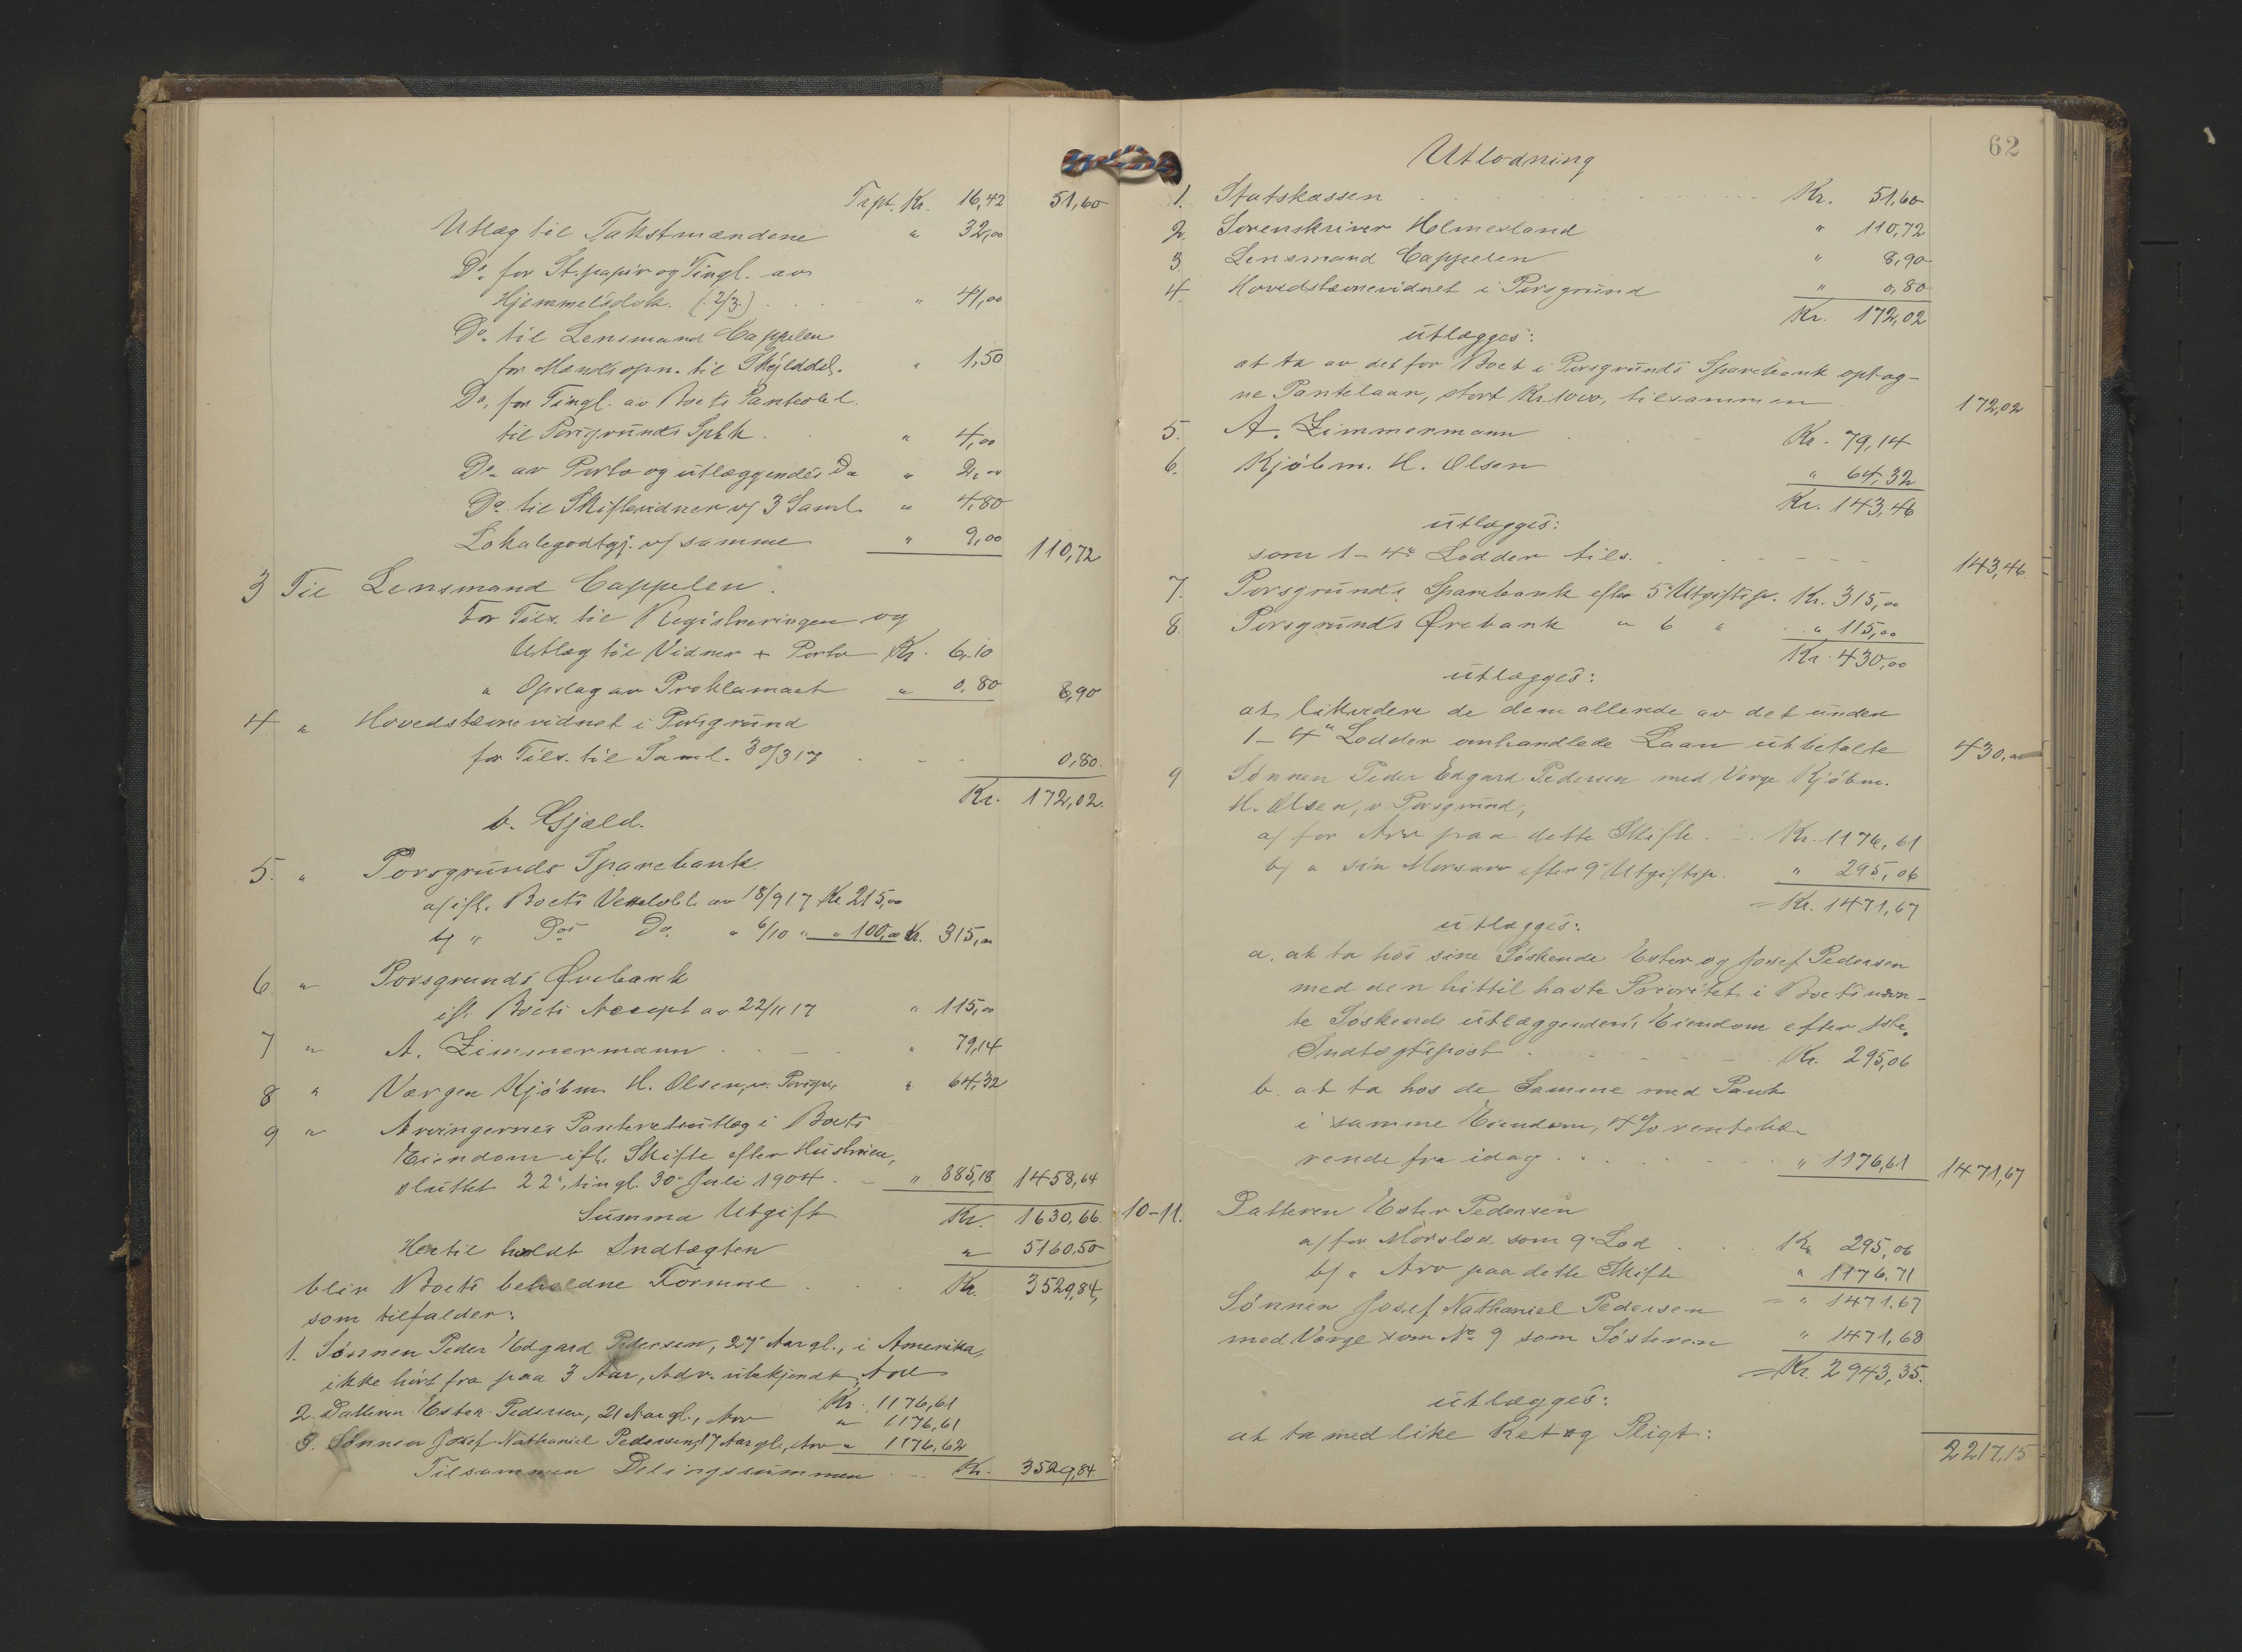 Trpt. Kr. 16,42 51,60
Utlæg til Takstmændene " 32,00
Do. for St.papir og Tingl. av
Hjemmelsdok. (2/3) . . . " 41,00
Do. til Lensmand Cappelen
for Mandsopn. til Skylddel. " 1,50
Do. for Tingl. av Boets Panteobl.
til Porsgrunds Spbk. . " 4,00
Do. av Porto og utlæggendes Do " 2,00
Do. til Skiftevidner v/ 3 Saml. " 4,80
Lokalegodtgj. v/ samme " 9,00 110,72
3 Til Lensmand Cappelen.
For Tils. til Registreringen og
Utlæg til Vidner + Porto Kr. 6,10
" Opslag av Proklamaet " 0,80 8,90
4 " Hovedstævnevidnet i Porsgrund
for Tils. til Saml. 30/3 17 . - - 0,80.
Kr. 172,02.
b. Gjæld.
5. " Porsgrunds Sparebank
a/ ifl. Boets Vexelobl. av 18/9 17 Kr. 215,00
b/ " Dos Do. " 6/10 " " 100,00 Kr. 315,00
6 " Porsgrunds Ørebank
ifl. Boets Accept av 22/11 17 " 115,00
7 " A. Zimmermann . . — . " 79,14
8 " Værgen Kjøbm. H. Olsen, v. Porsgr. " 64,32
9 " Arvingernes Panteretsutlæg i Boets
Eiendom ifl. Skifte efter Hustruen,
sluttet 22', tingl. 30' Juli 1904 . - " 885,18 1458,64
Summa Utgift Kr. 1630,66.
Hertil holdt Indtægten " 5160,50
blir Boets beholdne Formue . . Kr. 3529,84,
som tilfalder:
1. Sønnen Peder Edgard Pedersen, 27 Aar gl., i Amerika,
ikke hørt fra paa 3 Aar, Adr. ubekjendt, Arv
Kr. 1176,61
2. Datteren Ester Pedersen, 21 Aar gl., Arv " 1176,61
3. Sønnen Josef Nathaniel Pedersen, 17 Aar gl., Arv " 1176,62
Tilsammen Delingssummen . — Kr. 3529,84
62
Utlodning
1. Statskassen . . . . Kr. 51,60
2. Sorenskriver Holmesland " 110,72
3. Lensmand Cappelen " 8,90
4. Hovedstævnevidnet i Porsgrund " 0,80
Kr. 172,02
utlægges:
at ta av det for Boet i Porsgrunds Sparebank optag-
ne Pantelaan, stort Kr. 1000, tilsammen 172,02
5. A. Zimmermann . . Kr. 79,14
6. Kjøbm. H. Olsen " 64,32
Kr. 143,46
utlægges:
som 1 - 4de Lodder tils. . - - - - 143,46.
7. Porsgrunds Sparebank efter 5' Utgiftsp. Kr. 315,00
8. Porsgrunds Ørebank " 6 " . " 115,00
Kr. 430,00
utlægges:
at likvidere de dem allerede av det under
1 - 4" Lodder omhandlede Laan utbetalte 430,00
9 Sønnen Peder Edgard Pedersen med Verge Kjøbm.
H. Olsen, v. Porsgrund,
a/ for Arv paa dette Skifte . - . Kr. 1176,61
b/ " sin Morsarv efter 9' Utgiftsp. " 295,06
= Kr. 1471,67
utlægges:
a. at ta hos sine Søskende Ester og Josef Pedersen
med den hittil havte Prioritet i Boets næn-
te Søskende utlæggendes Eiendom efter 1ste
Indtægtspost . . - - - - . Kr. 295,06
b. at ta hos de Samme med Pant
i samme Eiendom, 4 % rentebæ-
rende fra idag . . . . . . " 1176,61 1471,67
10-11. Datteren Ester Pedersen
a/ for Morslod som 9' Lod . . . Kr. 295,06
b/ " Arv paa dette Skifte " 1176,71
= " 1471,67
Sønnen Josef Nathaniel Pedersen
med Verge som No 9 som Søsteren " 1471,68
= Kr. 2943,35.
utlægges:
at ta med like Ret og Pligt:
2217,15